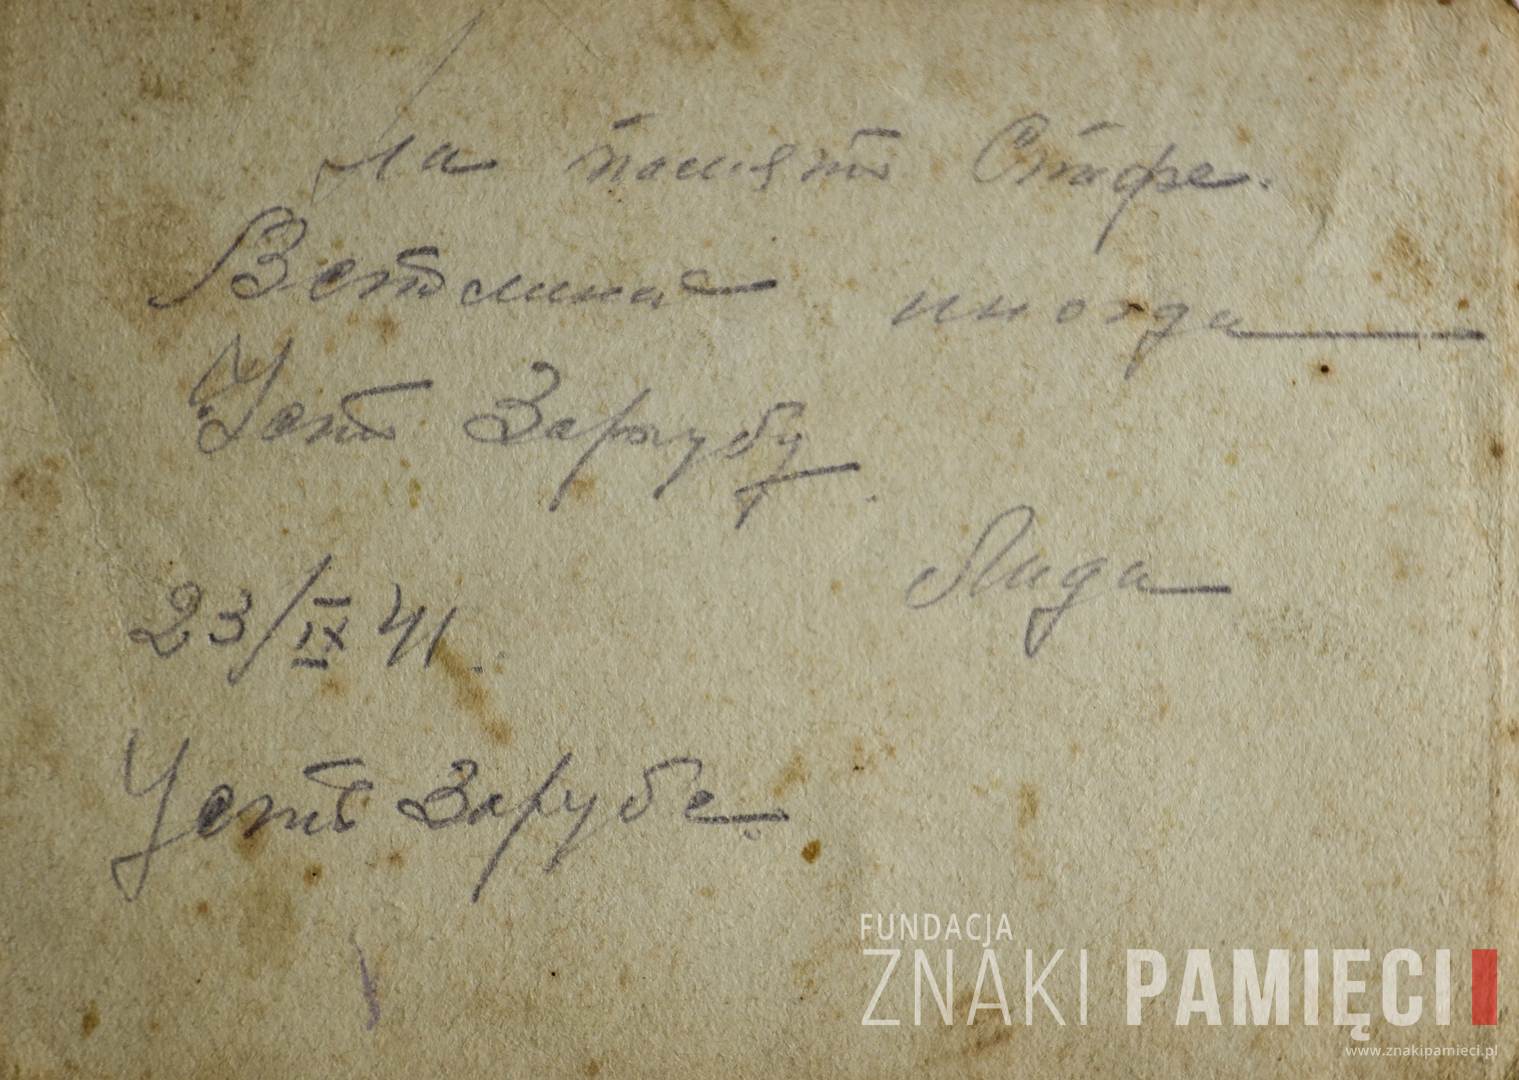 На память Стэфе.
Вспоминай иногда
Усть Зарубу.
Лида
23/IX 41.
Усть Зарубе.
FUNDACJA
ZNAKI PAMIĘCI
www.znakipamieci.pl